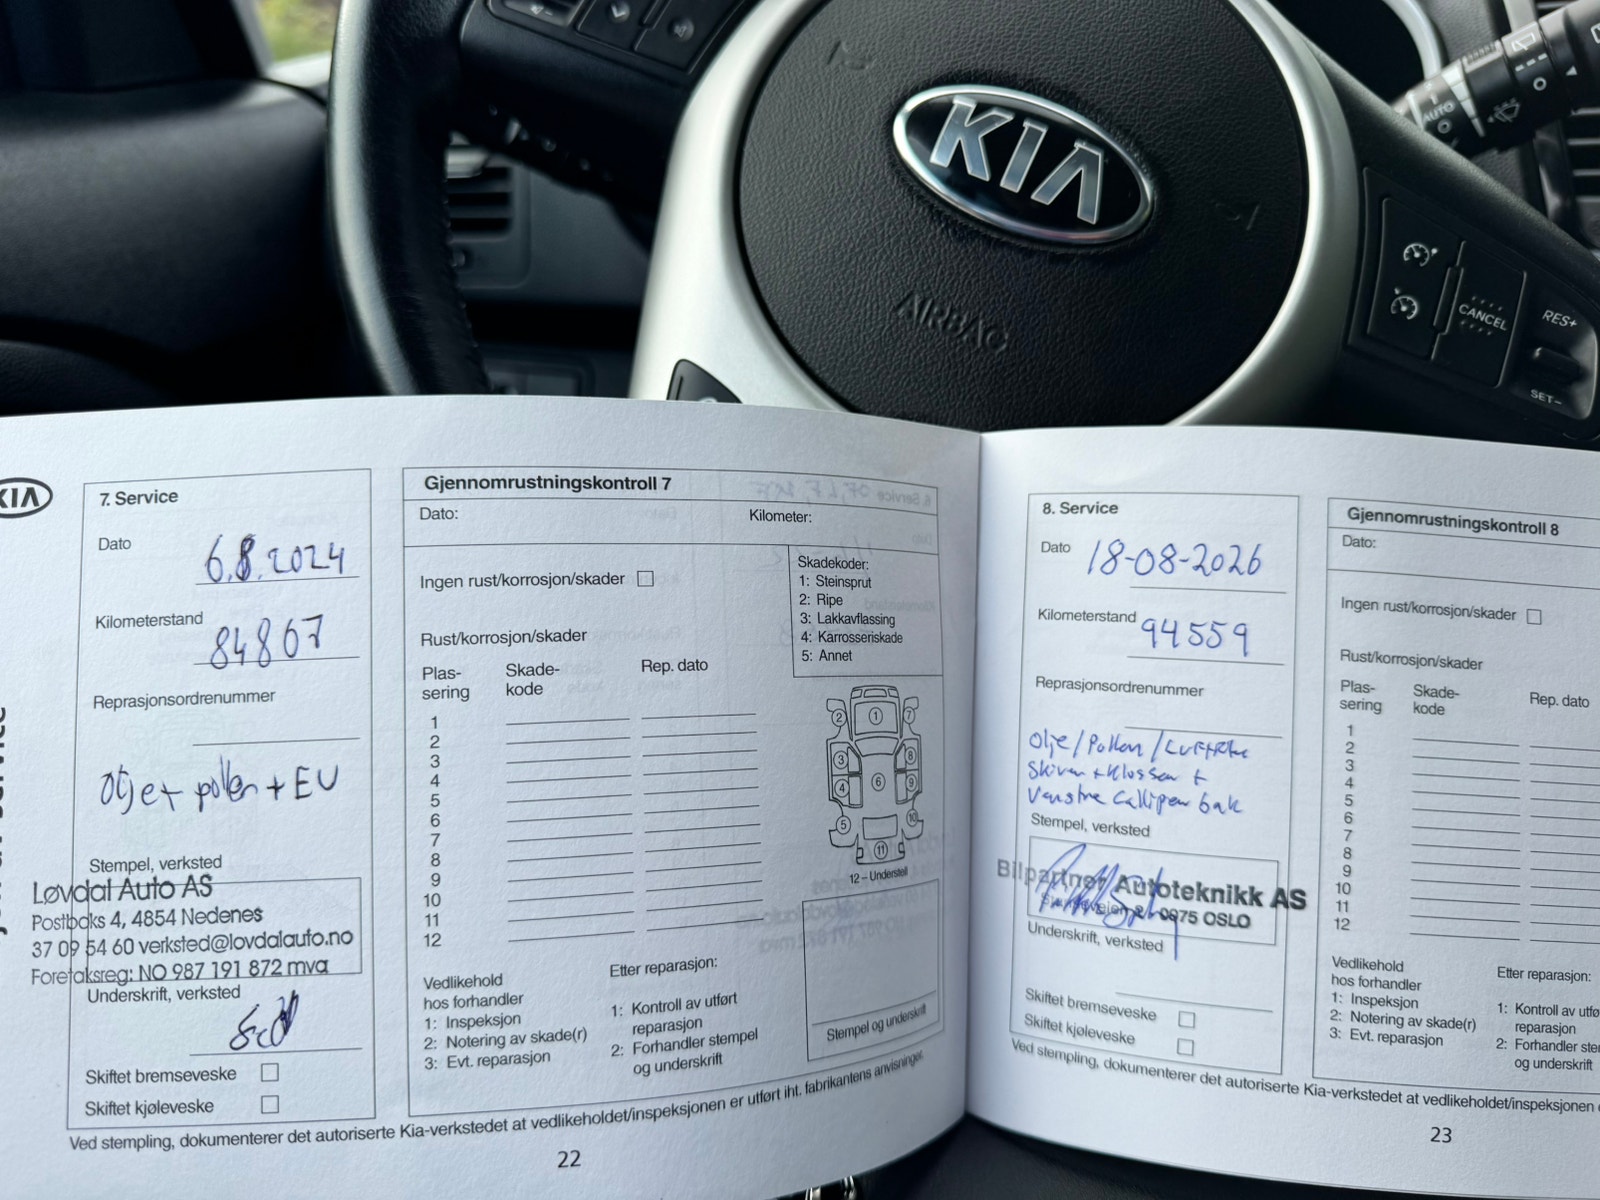 KIA
AIRBAG
AUTO
CANCEL
RES+
SET-
KIA
7. Service
Dato
6.8.2024
Kilometerstand
84867
Reprasjonsordrenummer
Olje + pollen + EU
Stempel, verksted
Løvdal Auto AS
Postboks 4, 4854 Nedenes
37 09 54 60 verksted@lovdalauto.no
Foretaksreg: NO 987 191 872 mva
Underskrift, verksted
Skiftet bremseveske
Skiftet kjøleveske
Gjennomrustningskontroll 7
Dato:
Kilometer:
Ingen rust/korrosjon/skader
Skadekoder:
1: Steinsprut
2: Ripe
3: Lakkavflassing
4: Karrosseriskade
5: Annet
Rust/korrosjon/skader
Plas-
sering
Skade-
kode
Rep. dato
1
2
3
4
5
6
7
8
9
10
11
12
1
2
7
3
8
4
6
9
5
10
11
12 – Understell
Vedlikehold
hos forhandler
1: Inspeksjon
2: Notering av skade(r)
3: Evt. reparasjon
Etter reparasjon:
1: Kontroll av utført
reparasjon
2: Forhandler stempel
og underskrift
Stempel og underskrift
Ved stempling, dokumenterer det autoriserte Kia-verkstedet at vedlikeholdet/inspeksjonen er utført iht. fabrikantens anvisninger.
22
8. Service
Dato
18-08-2026
Kilometerstand
94559
Reprasjonsordrenummer
Olje / Pollen / Luftfilter
Skiver + Klosser +
Venstre Calliper bak
Stempel, verksted
Bilpartner Autoteknikk AS
0975 OSLO
Underskrift, verksted
Skiftet bremseveske
Skiftet kjøleveske
Gjennomrustningskontroll 8
Dato:
Ingen rust/korrosjon/skader
Rust/korrosjon/skader
Plas-
sering
Skade-
kode
Rep. dato
1
2
3
4
5
6
7
8
9
10
11
12
Vedlikehold
hos forhandler
1: Inspeksjon
2: Notering av skade(r)
3: Evt. reparasjon
Etter reparasjon:
1: Kontroll av utfø
reparasjon
2: Forhandler ste
og underskrift
Ved stempling, dokumenterer det autoriserte Kia-verkstedet at vedlikeholdet/inspeksjonen
23